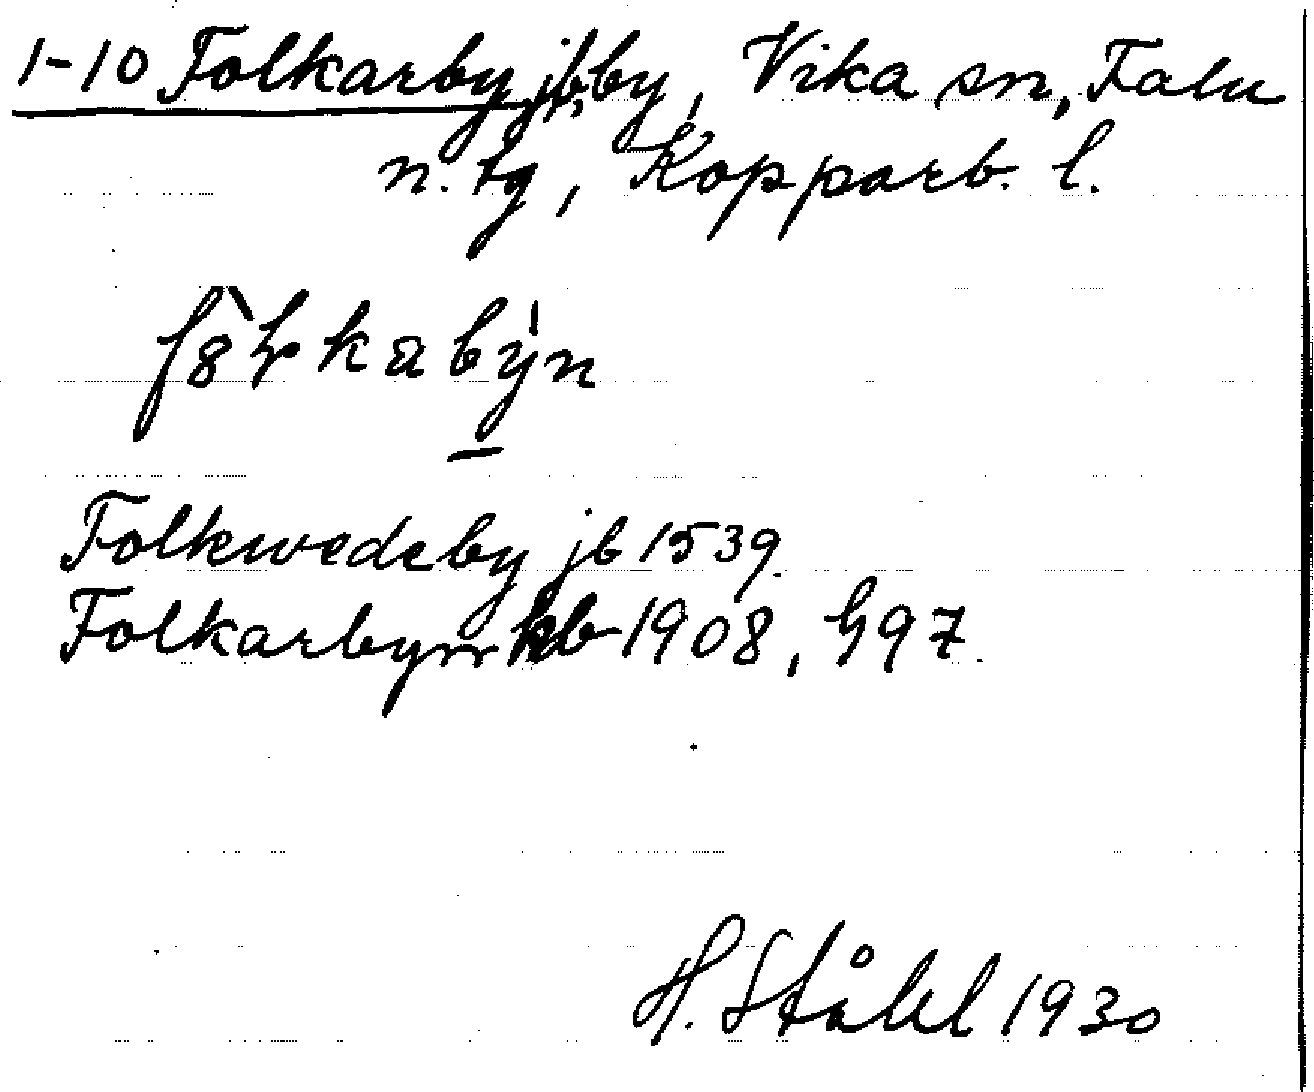 1-10 Folkarby, jb, by, Vika sn, Falu
n. tg, Kopparb. l.
Folkwedeby jb 1539.
Folkarbyn kb 1908, h 97.
H. Ståhl 1930